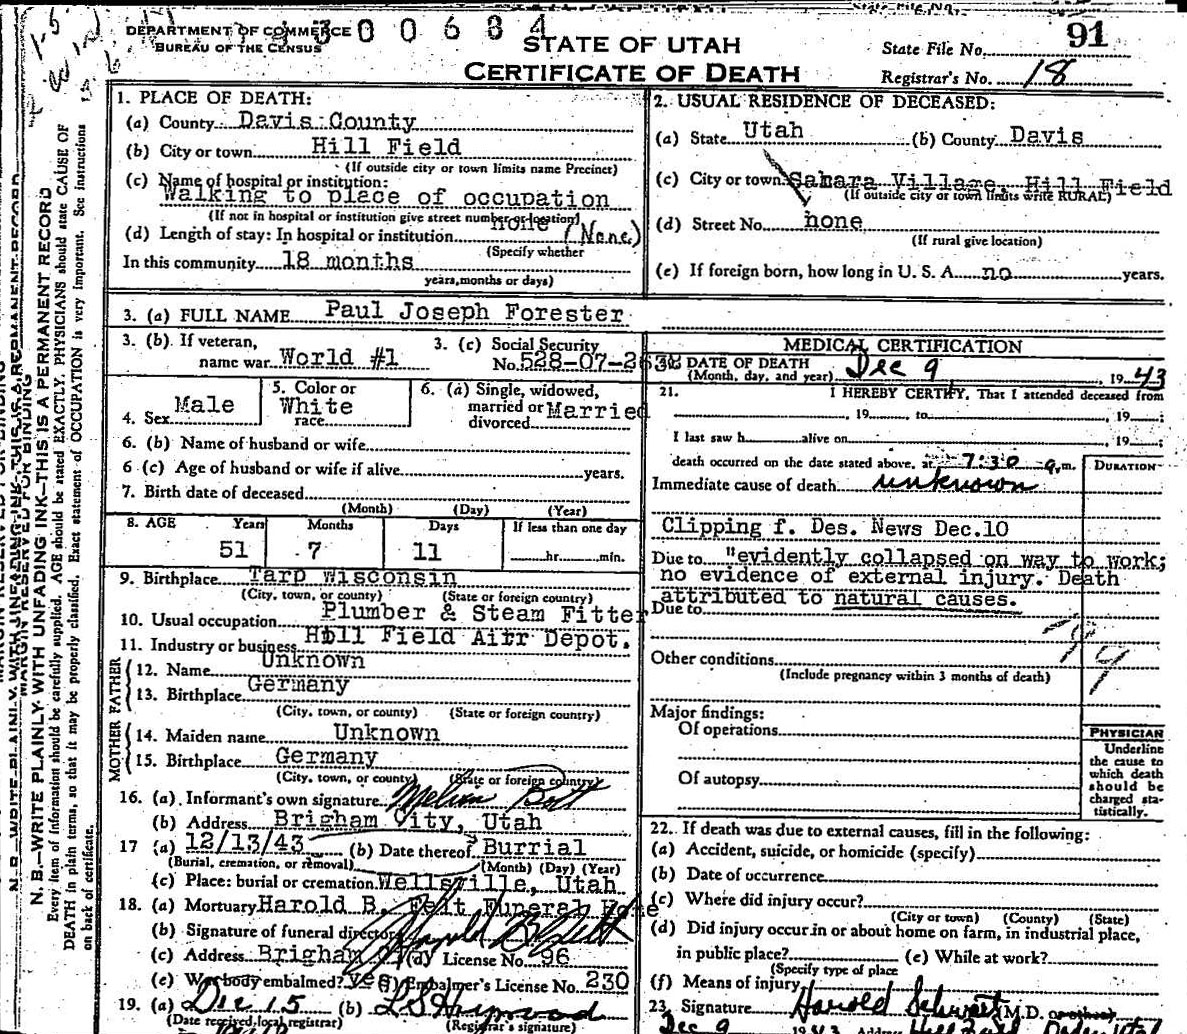 DEPARTMENT OF COMMERCE
BUREAU OF THE CENSUS
300684
STATE OF UTAH
CERTIFICATE OF DEATH
State File No. 91
Registrar's No. 18
N. B.—WRITE PLAINLY WITH UNFADING INK—THIS IS A PERMANENT RECORD
Every item of information should be carefully supplied. AGE should be stated EXACTLY. PHYSICIANS should state CAUSE OF
DEATH in plain terms, so that it may be properly classified. Exact statement of OCCUPATION is very important. See instructions
on back of certificate.
1. PLACE OF DEATH:
(a) County Davis County
(b) City or town Hill Field
(If outside city or town limits name Precinct)
(c) Name of hospital or institution:
Walking to place of occupation
(If not in hospital or institution give street number or location)
(d) Length of stay: In hospital or institution none (None)
(Specify whether
In this community 18 months
years, months or days)
2. USUAL RESIDENCE OF DECEASED:
(a) State Utah (b) County Davis
(c) City or town Sahara Village, Hill Field
(If outside city or town limits write RURAL)
(d) Street No. none
(If rural give location)
(e) If foreign born, how long in U. S. A. no years.
3. (a) FULL NAME Paul Joseph Forester
3. (b). If veteran,
name war World #1
3. (c) Social Security
No. 528-07-263
4. Sex Male
5. Color or
race White
6. (a) Single, widowed,
married or Married
divorced
6. (b) Name of husband or wife
6 (c) Age of husband or wife if alive years.
7. Birth date of deceased
(Month) (Day) (Year)
8. AGE Years Months Days If less than one day
51 7 11 hr. min.
9. Birthplace Tarp Wisconsin
(City, town, or county) (State or foreign country)
10. Usual occupation Plumber & Steam Fitter
11. Industry or business Hill Field Airr Depot.
FATHER
12. Name Unknown
13. Birthplace Germany
(City, town, or county) (State or foreign country)
MOTHER
14. Maiden name Unknown
15. Birthplace Germany
(City, town, or county) (State or foreign country)
16. (a) Informant's own signature Melvin Bott
(b) Address Brigham City, Utah
17 (a) 12/13/43 (b) Date thereof Burrial
(Burial, cremation, or removal) (Month) (Day) (Year)
(c) Place: burial or cremation Wellsville, Utah
18. (a) Mortuary Harold B. Felt Funeral Home
(b) Signature of funeral director Harold B. Felt
(c) Address Brigham City (d) License No. 96
(e) Was body embalmed? yes (f) Embalmer's License No. 230
19. (a) Dec 15 (b)
(Date received local registrar) (Registrar's signature)
MEDICAL CERTIFICATION
20. DATE OF DEATH Dec 9
(Month, day, and year) , 1943
21. I HEREBY CERTIFY, That I attended deceased from
, 19 , to , 19 ;
I last saw h alive on , 19 ;
death occurred on the date stated above, at 7:30 a.m.
DURATION
Immediate cause of death unknown
Clipping f. Des. News Dec.10
Due to "evidently collapsed on way to work;
no evidence of external injury. Death
attributed to natural causes.
Due to
Other conditions
(Include pregnancy within 3 months of death)
Major findings:
Of operations
Of autopsy
PHYSICIAN
Underline
the cause to
which death
should be
charged sta-
tistically.
22. If death was due to external causes, fill in the following:
(a) Accident, suicide, or homicide (specify)
(b) Date of occurrence
(c) Where did injury occur?
(City or town) (County) (State)
(d) Did injury occur in or about home on farm, in industrial place,
in public place? (e) While at work?
(Specify type of place
(f) Means of injury
23. Signature Harold Schwartz (M.D. or other)
Dec 9 1943 Address